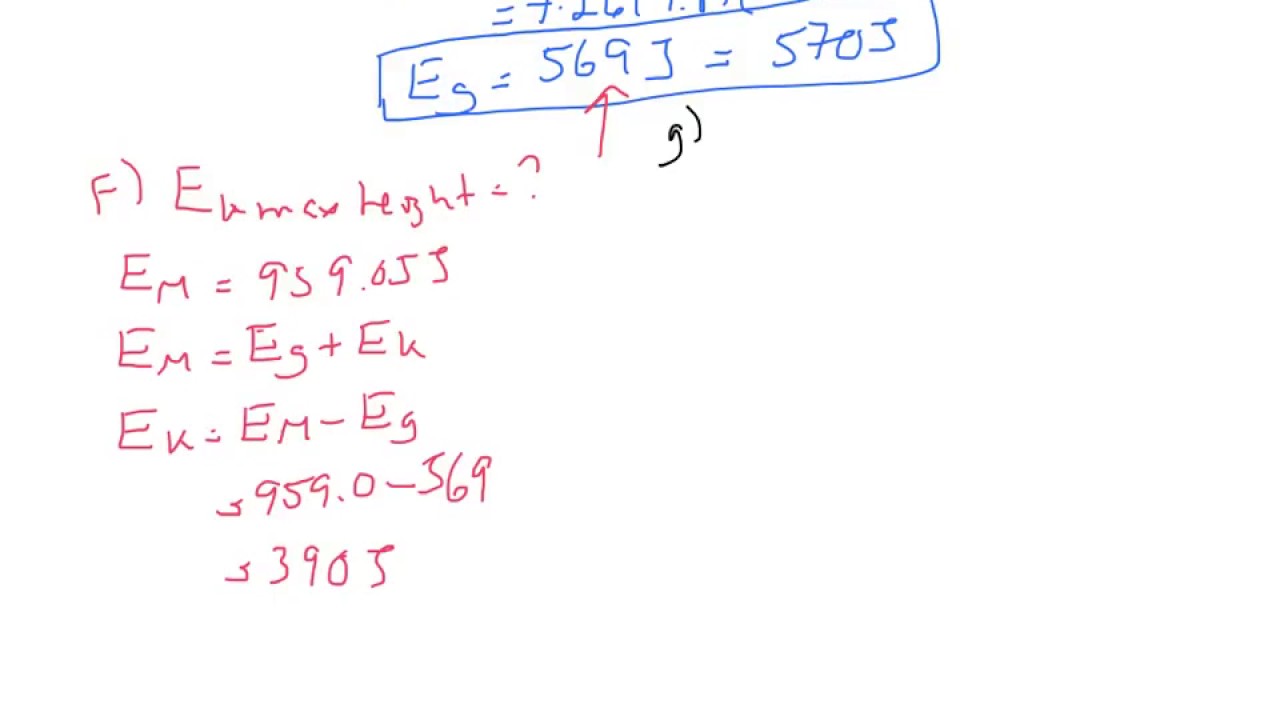 Eg = 569 J = 570J
g)
F) Ek max height = ?
EM = 959.05J
EM = Eg + Ek
Ek = EM - Eg
= 959.0 - 569
= 390J